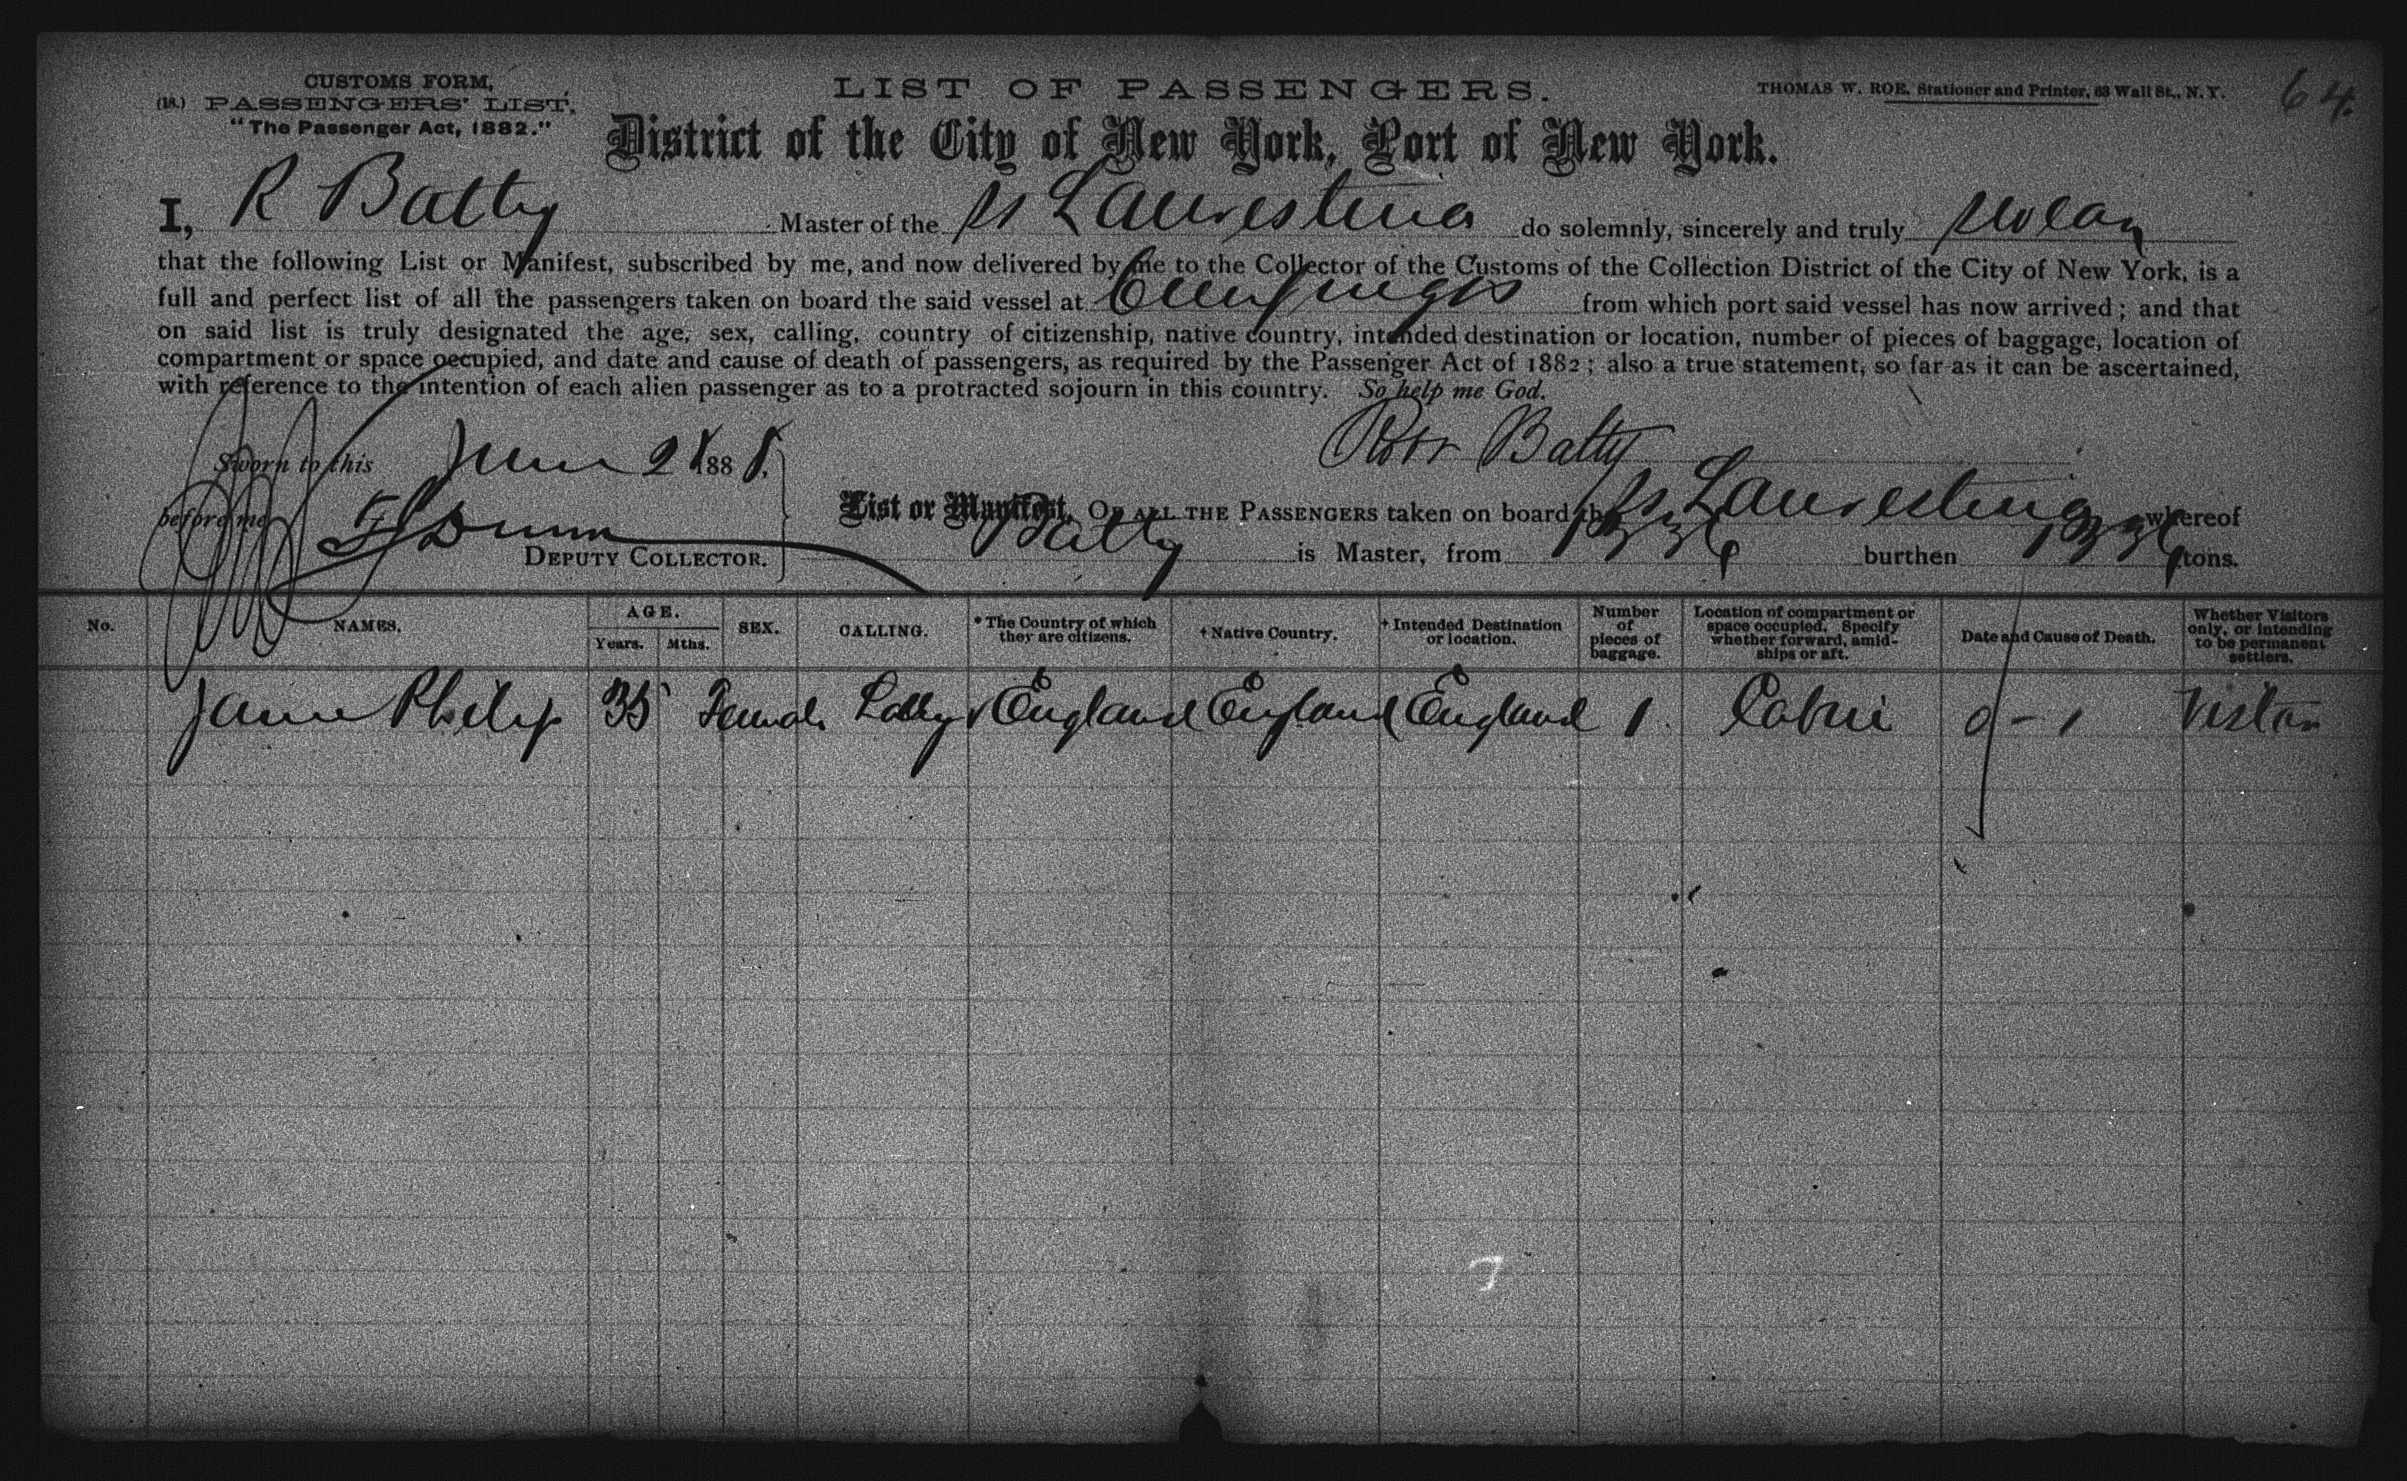 CUSTOMS FORM,
(18.) PASSENGERS' LIST.
"The Passenger Act, 1882."
LIST OF PASSENGERS.
THOMAS W. ROE, Stationer and Printer, 63 Wall St., N. Y.
64
District of the City of New York, Port of New York.
I, R Batty Master of the ss Laurestina do solemnly, sincerely and truly swear
that the following List or Manifest, subscribed by me, and now delivered by me to the Collector of the Customs of the Collection District of the City of New York, is a
full and perfect list of all the passengers taken on board the said vessel at Cienfuegos from which port said vessel has now arrived; and that
on said list is truly designated the age, sex, calling, country of citizenship, native country, intended destination or location, number of pieces of baggage, location of
compartment or space occupied, and date and cause of death of passengers, as required by the Passenger Act of 1882; also a true statement, so far as it can be ascertained,
with reference to the intention of each alien passenger as to a protracted sojourn in this country. So help me God.
Robt Batty
Sworn to this June 2 1888.
before me
Dunn
DEPUTY COLLECTOR.
List or Manifest, OF ALL THE PASSENGERS taken on board the ss Laurestina whereof
Batty is Master, from burthen tons.
No. NAMES. AGE. Years. Mths. SEX. CALLING. * The Country of which they are citizens. † Native Country. † Intended Destination or location. Number of pieces of baggage. Location of compartment or space occupied. Specify whether forward, amidships or aft. Date and Cause of Death. Whether Visitors only, or intending to be permanent settlers.
Jane Philip 35 Female Lady England England England 1 Cabin 0 - 1 Visitor